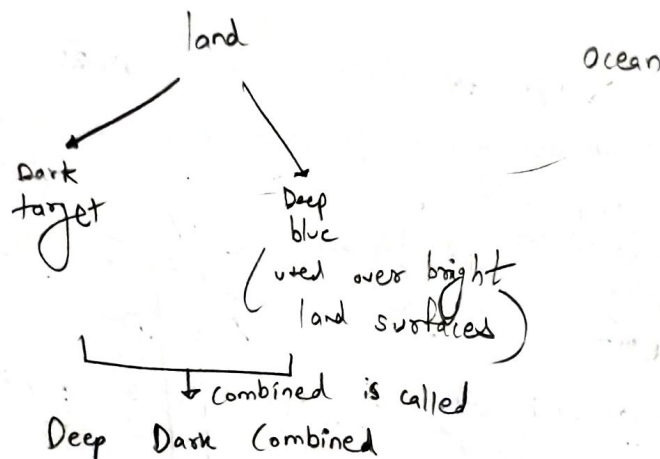 land
Ocean
Dark
target
Deep
blue
(used over bright
land surfaces)
combined is called
Deep Dark Combined